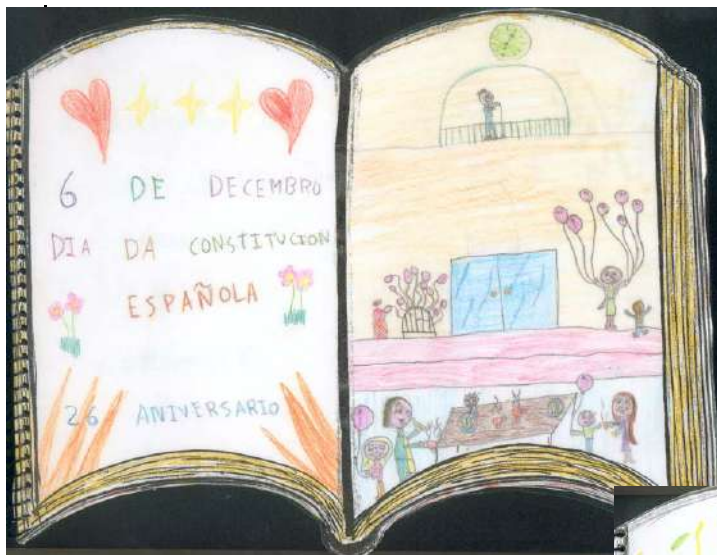 6 DE DECEMBRO
DIA DA CONSTITUCION
ESPAÑOLA
26 ANIVERSARIO